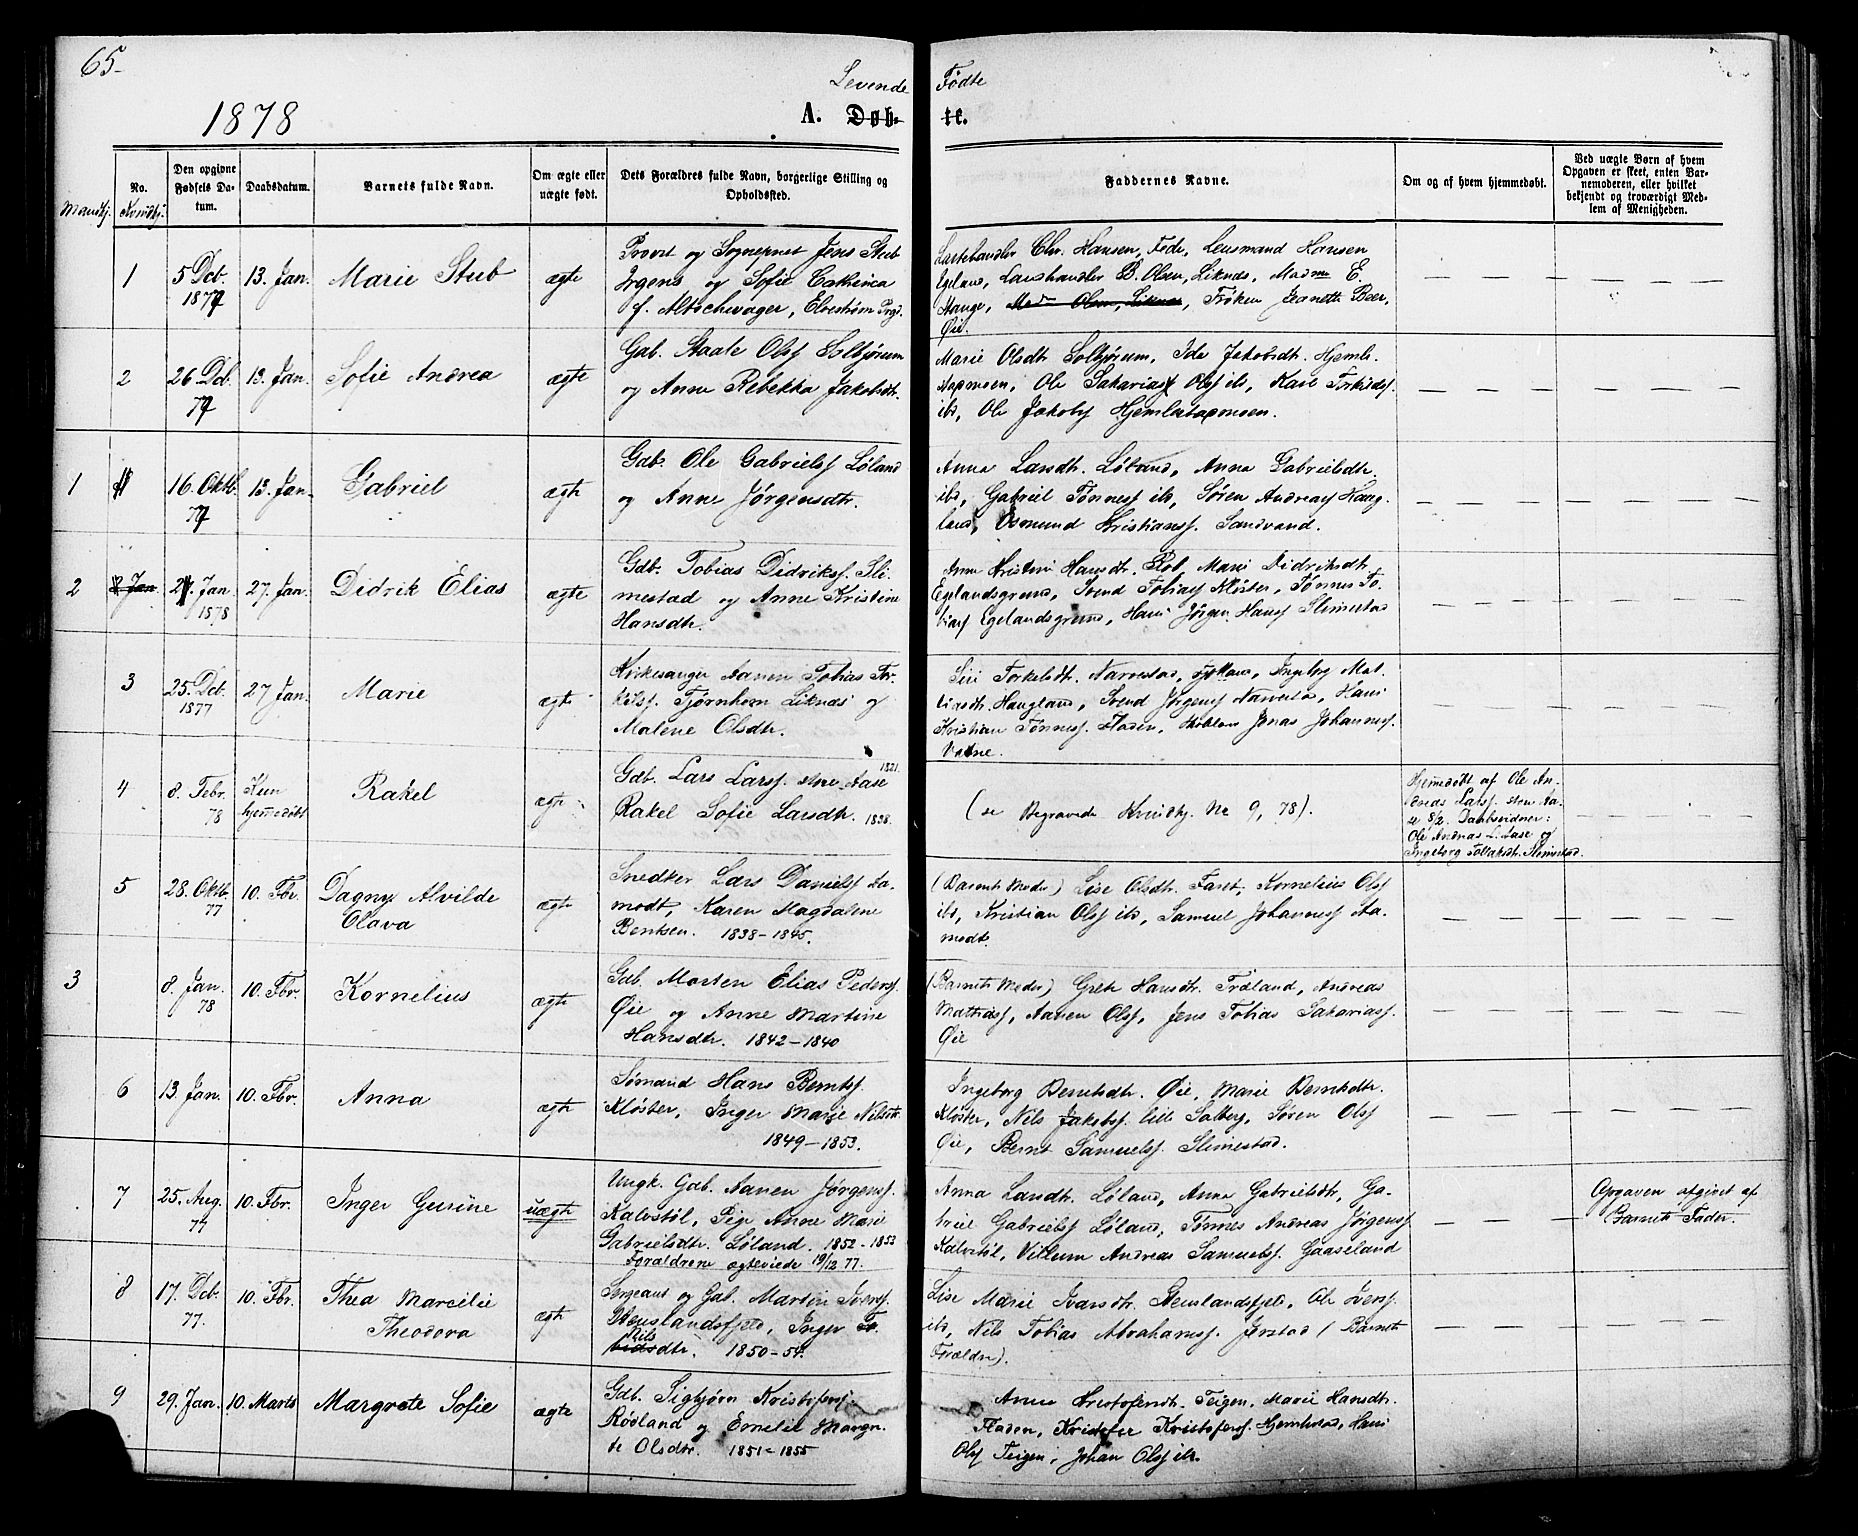 65.
Levende Fødte
1878
A. Døbte.
Mandkj.
No.
Kvindkj.
Den opgivne Fødsels Datum.
Daabsdatum.
Barnets fulde Navn.
Om ægte eller uægte født.
Dets Forældres fulde Navn, borgerlige Stilling og Opholdssted.
Faddernes Navne.
Om og af hvem hjemmedøbt.
Ved uægte Børn af hvem Opgaven er skeet, enten Barnemoderen, eller hvilket bekjendt og troværdigt Medlem af Menigheden.
1 5 Dcb. 1877 13. Jan. Marie Stub ægte
Provst og Sognepret Jens Stub
Irgens og Sofie Cathinca
f. Altschwager, Elvestrøm Prgd.
Chr. Hansen, Fede, Lensmand Hansen
Egeland, Landhandler B. Olsen, Liknes, Madme E
Stange, Mad. Olsen, Liknes, Frøken Jeanette Beer,
Øie.
2 26 Dcb. 77 13. Jan. Sofie Andrea ægte
Gab. Staale Olsf Solbjørum
og Anne Rebekka Jakobsdtr.
Marie Olsdtr Solbjørum, Ida Jakobsdtr. Hjeml.
Ole Sakariasf Olsf ibd, Karl Torkildsf.
ibd, Ole Jakobsf
1 16. Oktb. 77 13. Jan. Gabriel ægte
Gdb. Ole Gabrielsf Løland
og Anne Jørgensdtr.
Anna Larsdtr. Løland, Anna Gabrielsdtr.
ibd, Gabriel Tønnesf ibd, Søren Andreasf Haug-
land, Osmund Kristiansf. Sandvand.
2 2 Jan 21. Jan 1878 27. Jan. Didrik Elias ægte
Gdb. Tobias Didriksf. Sli-
mestad og Anne Kristine
Hansdtr.
Anne Kristine Hansdtr. Marie Didriksdtr.
Egelandsgrund, Svend Tobiasf Kloster, Tønnes To-
biasf Egelandsgrund, Hans Jørgen Hansf Slimestad
3 25. Dcb. 1877 27 Jan. Marie ægte
Kirkesanger Aanen Tobias Tor-
kilsf. Tjørnhom Liknes og
Malene Olsdtr.
Siri Torkelsdtr. Narvestad, Ingeborg Mat-
hisdtr. Haugland, Svend Jørgensf Narvestad, Hans
Kristian Tønnesf. Fladen, Jonas Johannesf.
Vatne.
4 8. Febr. 78 Kun hjemmedøbt Rakel ægte
Gdb. Lars Larsf. store Aase 1821.
Rakel Sofie Larsdtr. 1838.
(se Begravede Kvindkj. No 9, 78).
Hjemmedøbt af Ole An-
dreas Larsf. store Aa-
se 8/2. Daabsvidner:
Ole Andreas L. Aase og
Ingeborg Slimestad.
5 28. Oktb. 77 10. Fbr. Dagny Alvilde
Olava ægte
Snedker Lars Danielsf Aa-
modt, Karen Magdalene
Bentsen. 1838-1845.
(Barnets Moder) Lise Olsdtr. Faret, Kornelius Olsf
ibd, Kristian Olsf ibd, Samuel Johannesf Aa-
modt.
3 8. Jan. 78 10. Fbr. Kornelius ægte
Gdb. Morten Elias Pedersf.
Øie og Anne Martine
Hansdtr. 1842-1840
(Barnets Moder) Grete Hansdtr. Træland, Andreas
Mathiasf, Aanen Olsf, Jens Tobias Sakariasf.
Øie
6 13. Jan. 10. Fbr. Anna ægte
Sømand Hans Berntsf.
Kloster, Inger Marie Nilsdtr.
1849-1853.
Ingeborg Berntsdtr. Øie, Marie Berntsdtr.
Kloster, Nils Jakobsf. lille Salberg, Søren Olsf
Øie, Bernt Samuelsf. Slimestad.
7 25. Aug. 77 10. Fbr. Inger Gurine uægte
Ungk. Gab. Aanen Jørgensf.
Kalvstøl, Pige Anne Marie
Gabrielsdtr. Løland. 1852-1853
Forældrene ægteviede 19/12 77.
Anna Larsdtr. Løland, Anna Gabrielsdtr, Ga-
briel Gabrielsf Løland, Tønnes Andreas Jørgensf
Kalvstøl, Villum Andreas Samuelsf. Gaaseland
Opgaven afgivet af
Barnets Fader.
8 17. Dcb. 77. 10. Fbr. Thea Marcelie
Theodora ægte
Sergeant og Gab. Martin Iversf.
Stenslandsfjeld, Inger To-
bias Nilsdtr. 1850-54.
Lise Marie Ivarsdtr. Stenslandsfjeld, Ole Iversf.
ibd, Nils Tobias Abrahamsf. Jerstad (Barnets
Forældre).
9 29. Jan. 10. Marts Margrete Sofie ægte
Gdb. Sigbjørn Kristofersf.
Røiland og Emelie Margre-
te Olsdtr. 1851-1855
Anne Kristofersdtr. Teigen, Marie Hansdtr.
Fladen, Kristofer Kristofersf. Hans
Olsf Teigen, Johan Olsf ibd.